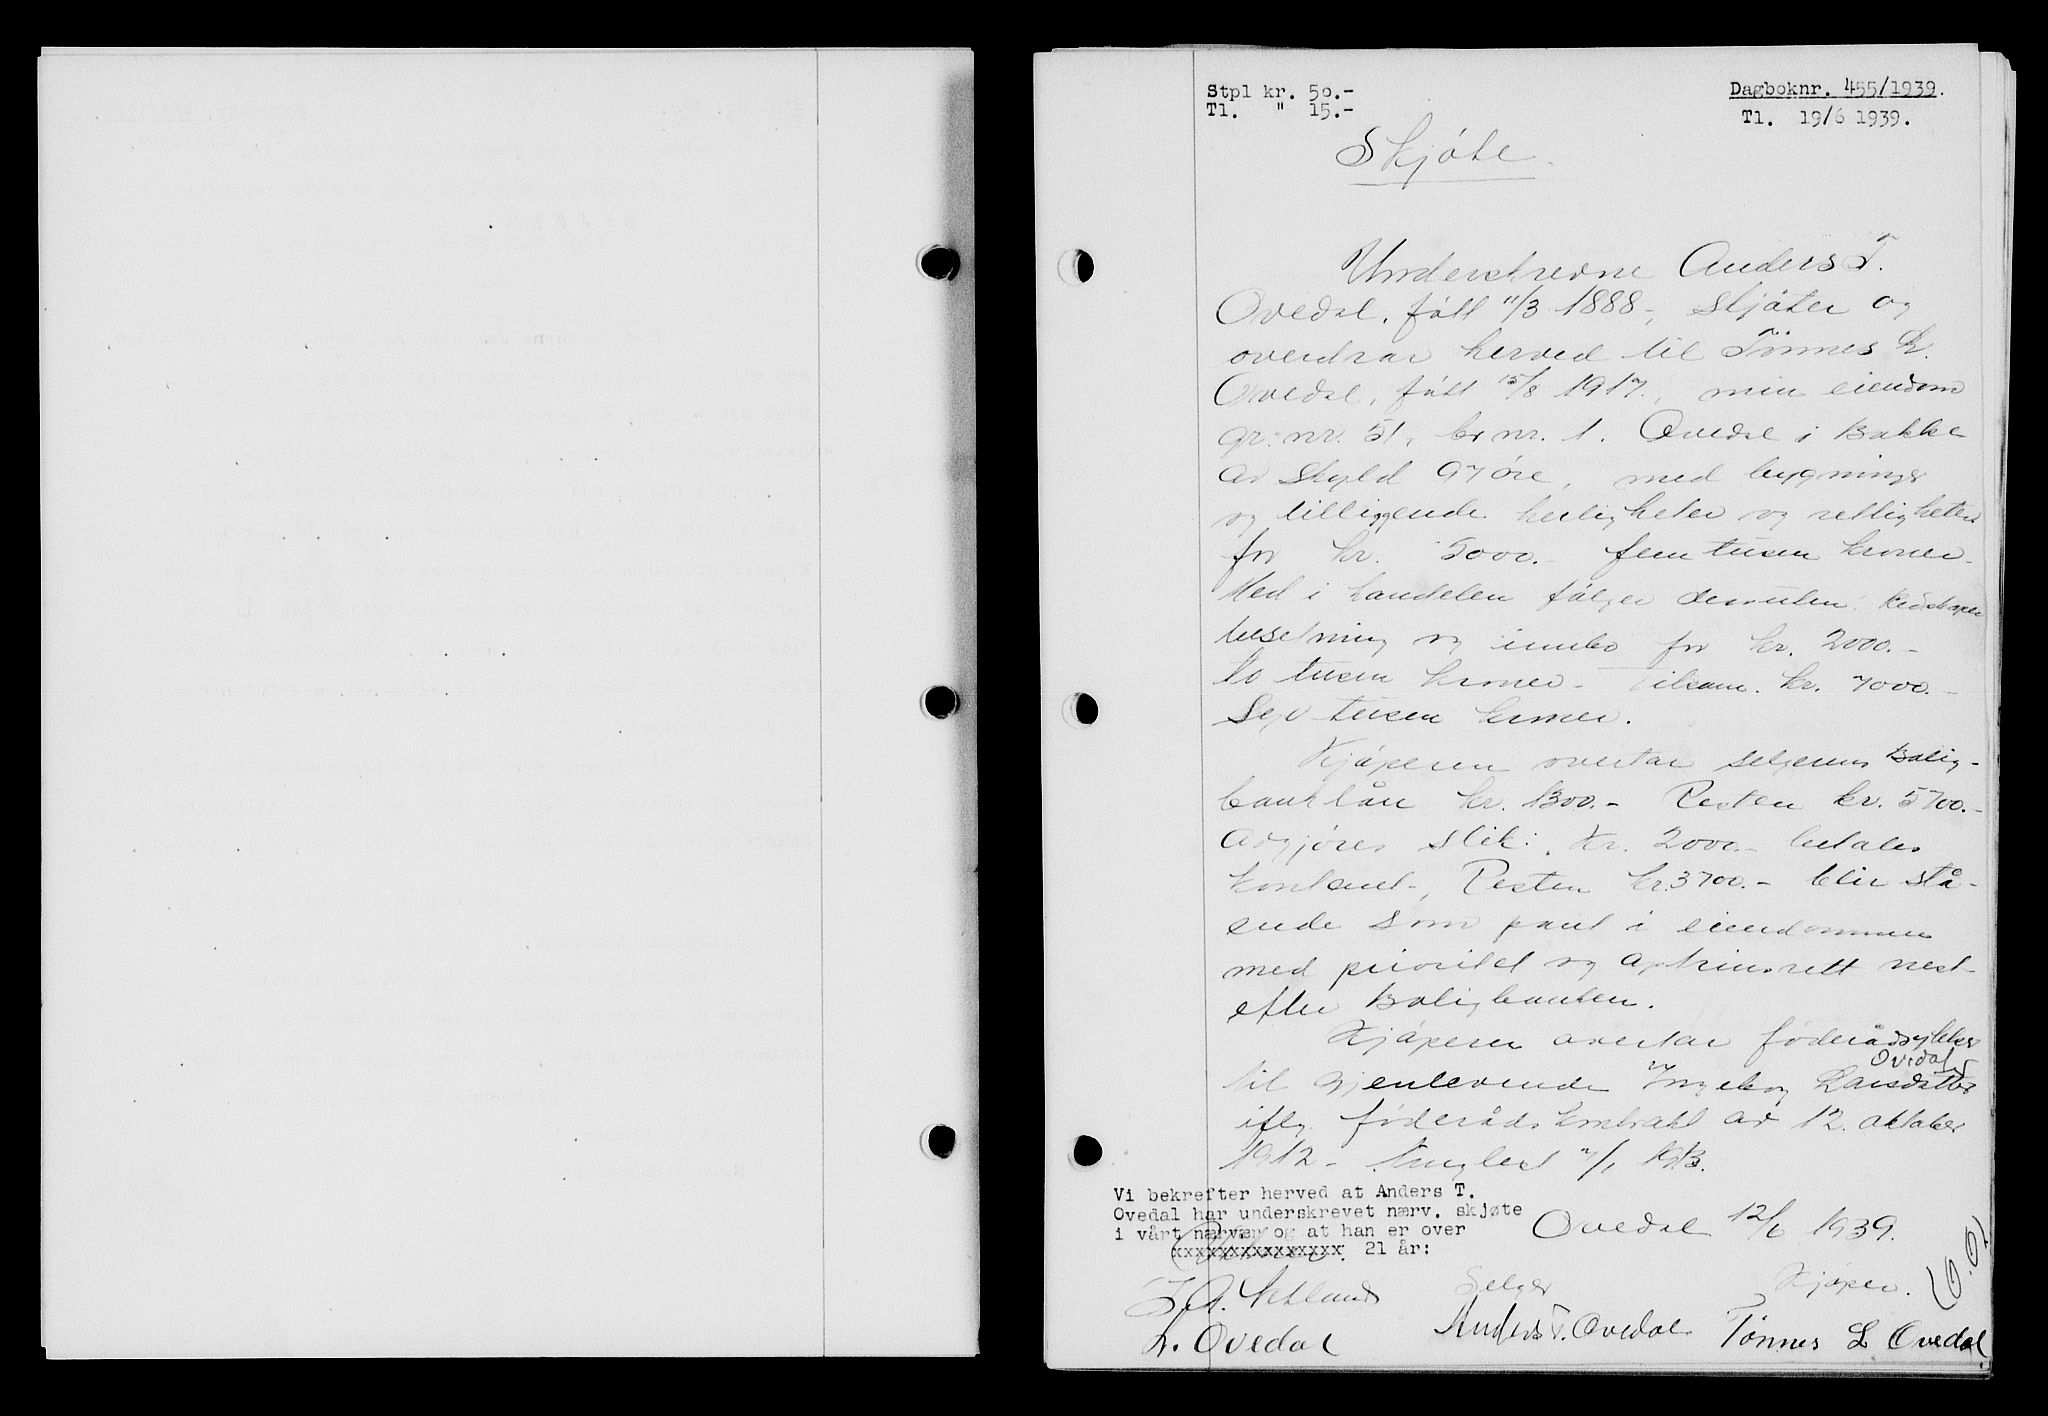 Stpl kr. 50.-
Tl. " 15.-
Dagboknr. 455/1939.
Tl. 19/6 1939.
Skjøte.
Underskrevne Anders T.
Ovedal, født 11/3 1888, skjøter og
overdrar herved til Tønnes L.
Ovedal, født 15/8 1917, min eiendom
gr. nr. 51, br nr. 1. Ovedal i Bakke
av skyld 97 øre, med bygninger
og tilliggende herligheter og rettigheter
for kr. 5000.- fem tusen kroner.
Med i handelen følger dessuten: Redskaper
besetning og innbo for kr. 2000.-
to tusen kroner - Tilsam. kr. 7000.-
Syv tusen kroner.
Kjøperen overtar selgerens Bolig-
banklån kr. 1300.- Resten kr. 5700.-
avgjøres slik: Kr. 2000.- betales
kontant-, Resten kr. 3700.- blir stå-
ende som pant i eiendommen
med prioritet og optrinsrett nest-
efter Boligbanken.
Kjøperen overtar føderådsytelser
til gjenlevende Ingeborg Larsdatter Ovedal
iflg føderådskontrakt av 12. oktober
1912 - tinglest 7/1 1913.
Vi bekrefter herved at Anders T.
Ovedal har underskrevet nærv. skjøte
i vårt nærvær og at han er over
xxxxxxxxxxxxxxx 21 år:
Ovedal 12/6 1939.
Selger Kjøper.
Anders T. Ovedal Tønnes L Ovedal.
L. Ovedal